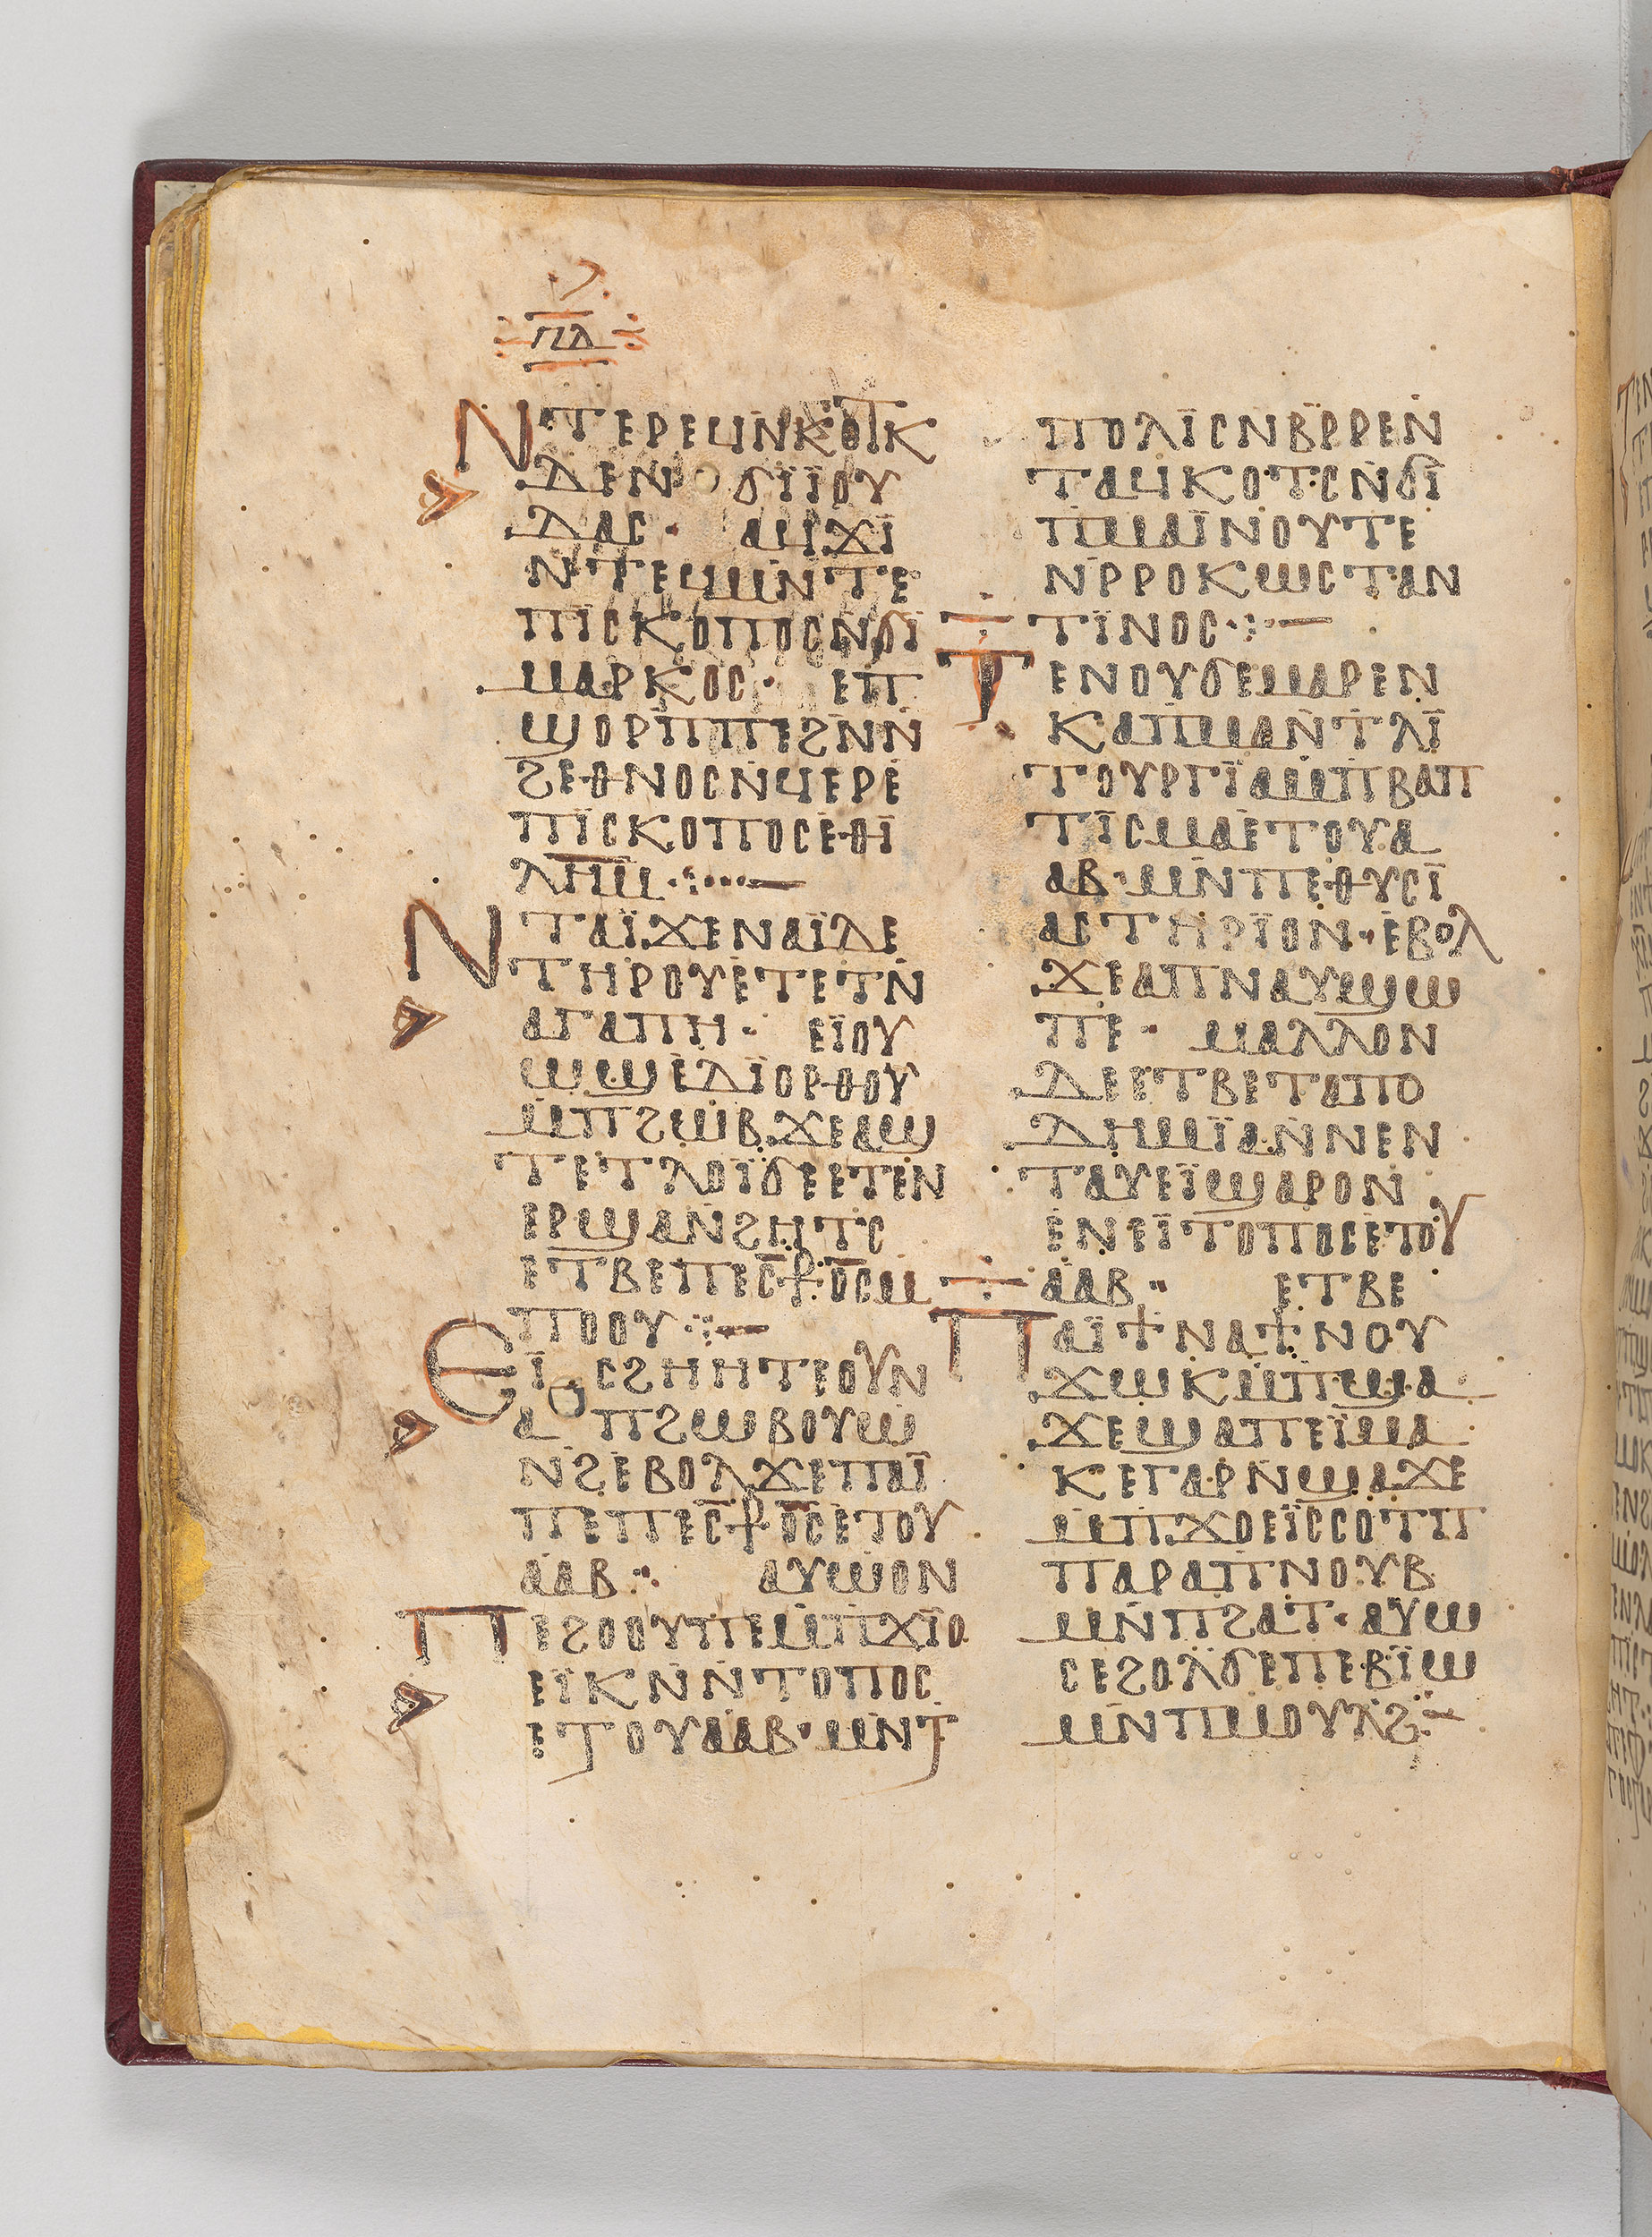 ⲡⲇ
ⲚⲦⲈⲢⲈϤⲚⲔⲞⲦⲔ
ⲆⲈⲚϬⲒⲒ̈ⲞⲨ
ⲆⲀⲤ· ⲀϤϪⲒ̈
ⲚⲦⲈϤⲘⲚⲦⲈ
ⲠⲒ̈ⲤⲔⲞⲠⲞⲤⲚϬⲒ̈
ⲘⲀⲢⲔⲞⲤ· ⲈⲠ
ϢⲞⲢⲠⲠⲈϨⲚⲚ
ϨⲈⲐⲚⲞⲤⲚϤⲈⲢⲈ
ⲠⲒ̈ⲤⲔⲞⲠⲞⲤⲈⲐⲒ̈
ⲖⲎⲘ·:···—
ⲚⲦⲀⲒ̈ϪⲈⲚⲀⲒ̈ⲆⲈ
ⲦⲎⲢⲞⲨⲈⲦⲈⲦⲚ
ⲀⲄⲀⲠⲎ· ⲈⲒ̈ⲞⲨ
ⲰϢⲈⲆⲒ̈ⲞⲢⲐⲞⲨ
ⲘⲠϨⲰⲂϪⲈⲀϢ
ⲦⲈⲦⲖⲞⲒ̈ϬⲈⲈⲦⲈⲚ
ⲈⲢϢⲀⲚϨⲎⲦⲤ
ⲈⲦⲂⲈⲠⲈⲤ̅⳨ⲞⲤ̅Ⲙ
ⲠⲞⲞⲨ·:—
ⲈⲒ̈ⲤϨⲎⲎⲦⲈⲞⲨⲚ
ⲀⲠϨⲰⲂⲞⲨⲰ
ⲚϨⲈⲂⲞⲖϪⲈⲠⲀⲒ̈
ⲠⲈⲠⲈⲤ̅⳨ⲞⲤ̅ⲈⲦⲞⲨ
ⲀⲀⲂ·· ⲀⲨⲰⲞⲚ
ⲠⲈϨⲞⲞⲨⲠⲈⲘⲠϪⲒ̈Ⲟ
ⲈⲒ̈ⲔⲚⲚⲦⲞⲠⲞⲤ
ⲈⲦⲞⲨⲀⲀⲂ·ⲘⲚⲦ
ⲠⲞⲖⲒ̈ⲤⲚⲂⲢⲢⲈⲚ
ⲦⲀϤⲔⲞⲦⲤⲚϬⲒ̈
ⲠⲘⲀⲒ̈ⲚⲞⲨⲦⲈ
ⲚⲢⲢⲞⲔⲰⲤⲦⲀⲚ
ⲦⲒ̈ⲚⲞⲤ·:·—
ⲦⲈⲚⲞⲨϬⲈⲘⲀⲢⲈⲚ
ⲔⲀⲠⲘⲀⲚⲦⲖⲒ̈
ⲦⲞⲨⲢⲄⲒ̈ⲀⲘⲠⲂⲀⲠ
ⲦⲒ̈ⲤⲘⲀⲈⲦⲞⲨⲀ
ⲀⲂ·ⲘⲚⲠⲈⲐⲨⲤⲒ̈
ⲀⲤⲦⲎⲢⲒ̈ⲞⲚ··ⲈⲂⲞⲖ
ϪⲈⲀⲠⲚⲀⲨϢⲰ
ⲠⲈ· ⲘⲀⲖⲖⲞⲚ
ⲆⲈⲈⲦⲂⲈⲦⲀⲠⲞ
ⲆⲎⲘⲒ̈ⲀⲚⲚⲈⲚ
ⲦⲀⲨⲈⲒ̈ϢⲀⲢⲞⲚ
ⲈⲚⲈⲒ̈ⲦⲞⲠⲞⲤⲈⲦⲞⲨ
ⲀⲀⲂ·· ⲈⲦⲂⲈ
ⲠⲀⲒ̈ϮⲚⲀϮⲚⲞⲨ
ϪⲰⲔⲘⲠϢⲀ
ϪⲈϢⲀⲠⲈⲒ̈ⲘⲀ
ⲔⲈⲄⲀⲢⲚϢⲀϪⲈ
ⲘⲠϪⲞⲈⲒ̈ⲤⲤⲞⲦⲠ
ⲠⲀⲢⲀⲠⲚⲞⲨⲂ
ⲘⲚⲠϨⲀⲦ·ⲀⲨⲰ
ⲤⲈϨⲞⲖϬⲈⲠⲈⲂⲒ̈Ⲱ
ⲘⲚⲠⲘⲞⲨⲖϨ:—